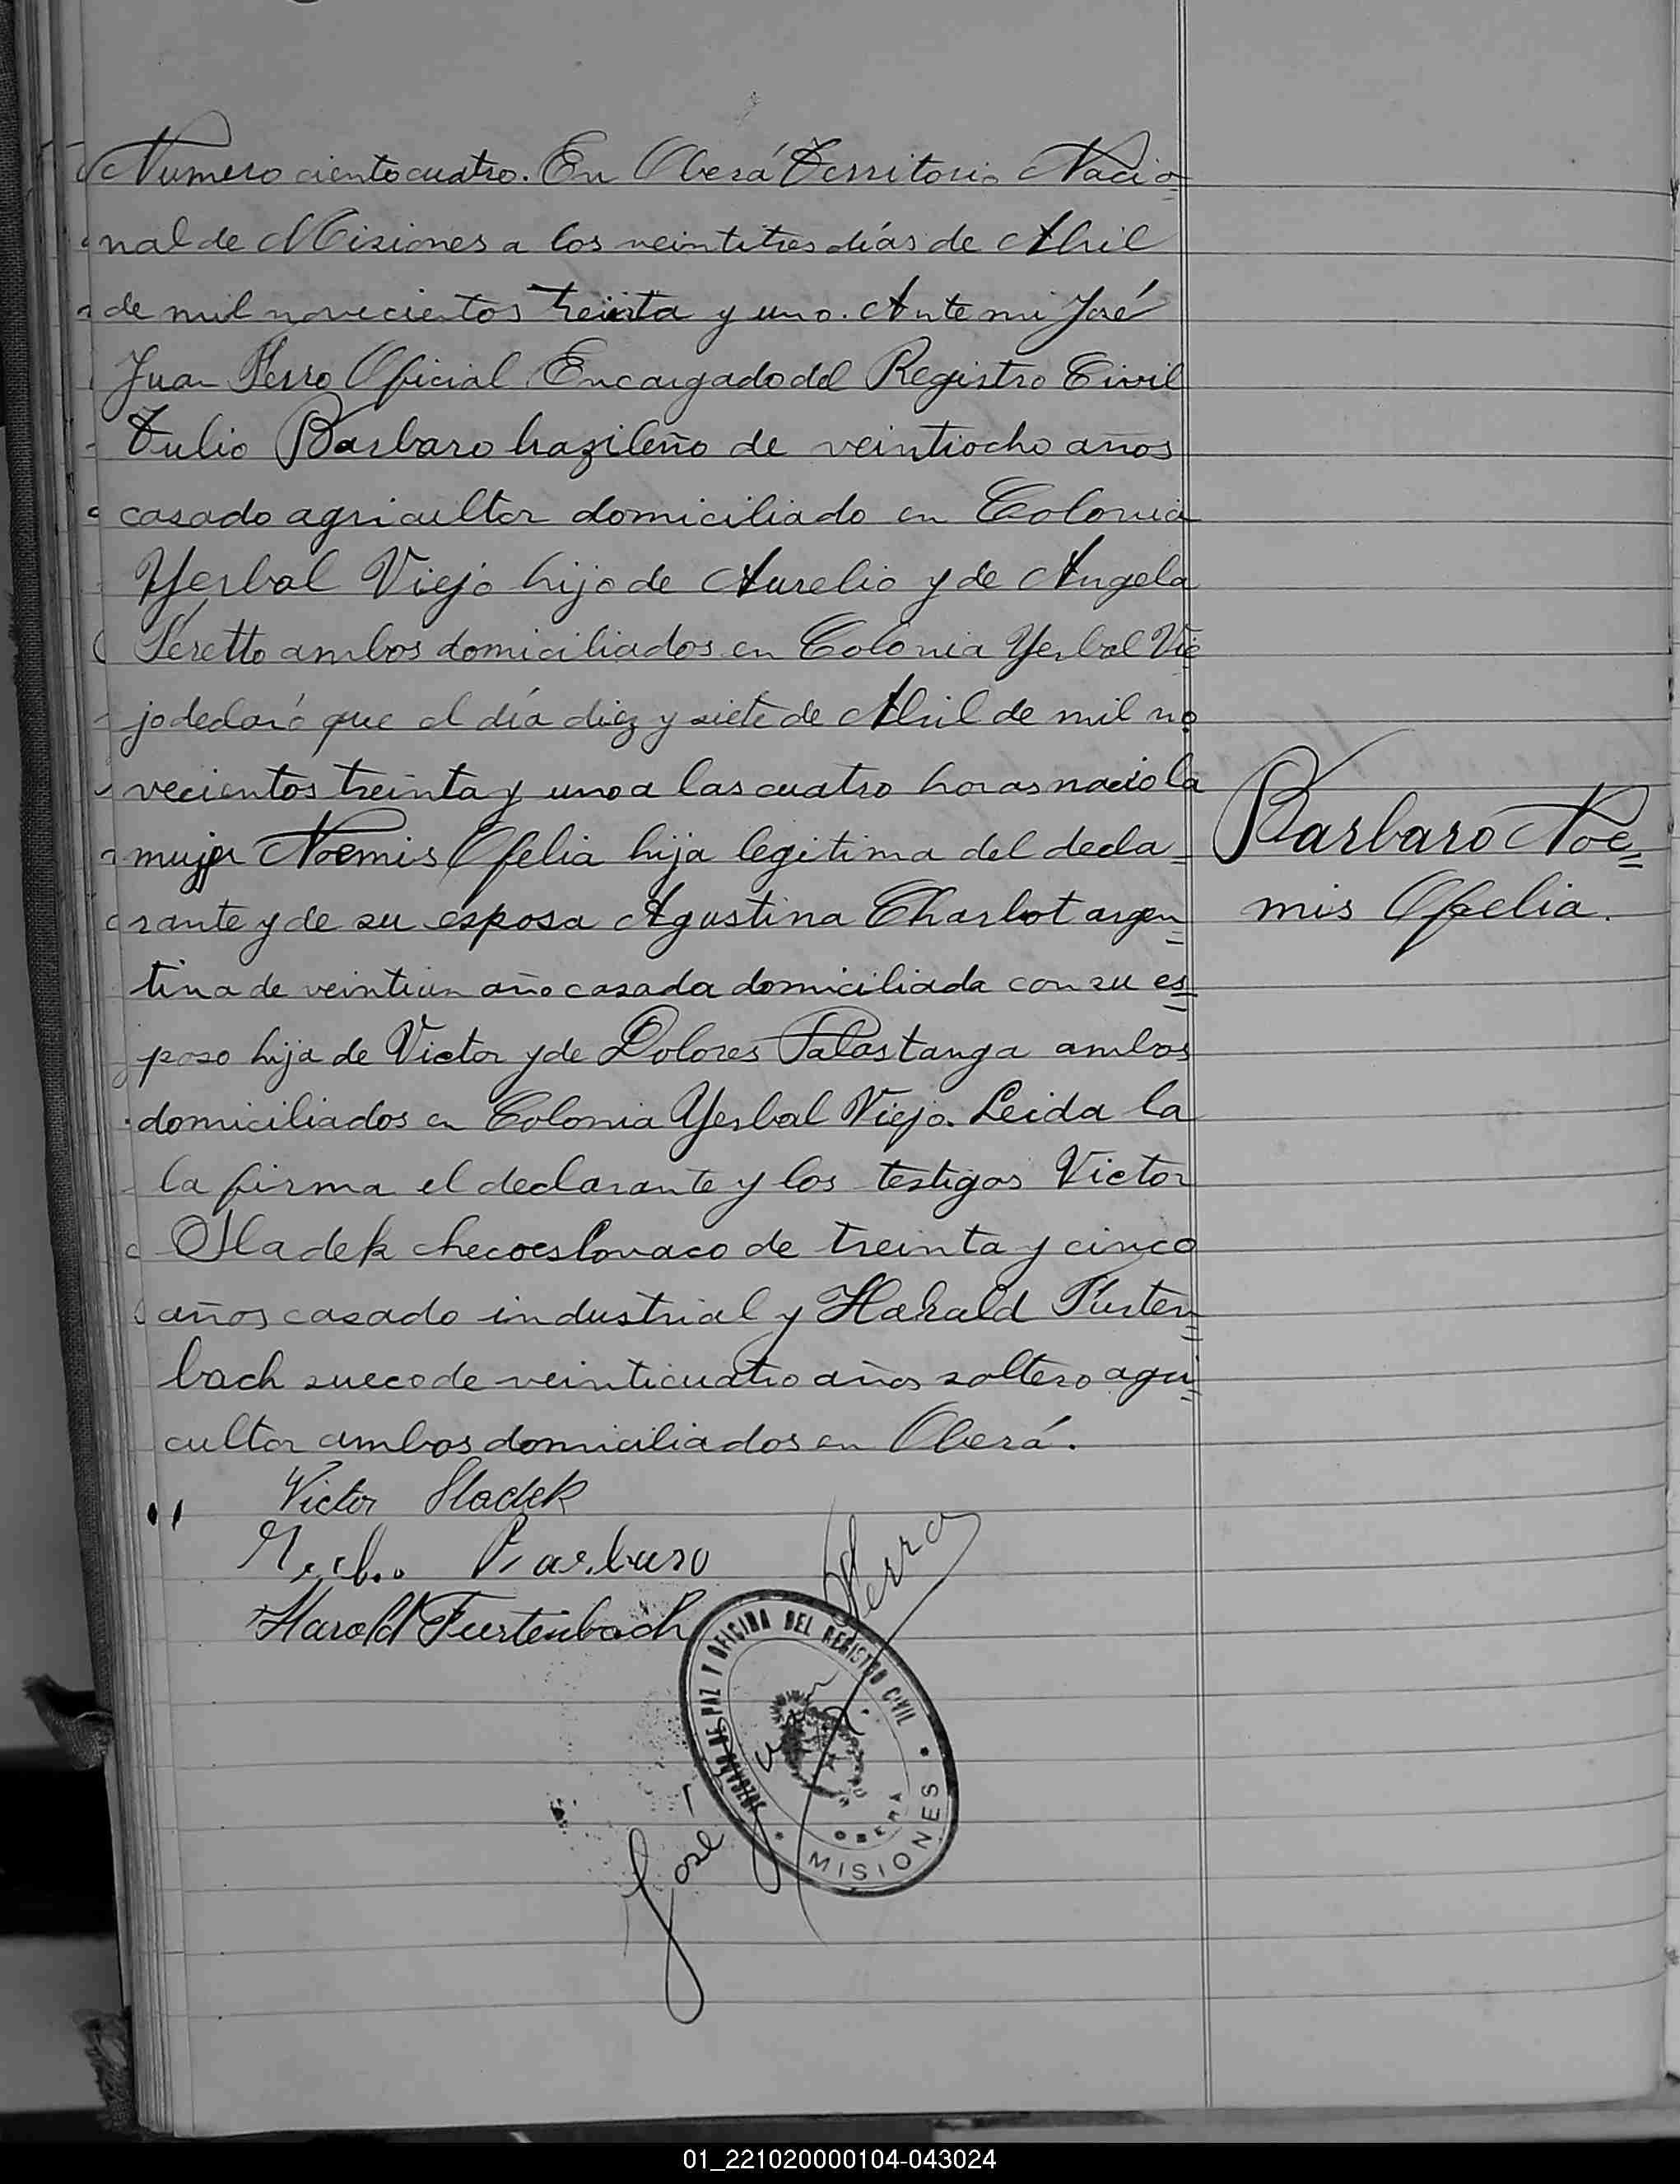 Numero ciento cuatro. En Oberá Territorio Nacio-
nal de Misiones a los veintitres días de Abril
de mil novecientos treinta y uno. Ante mi José
Juan Ferro Oficial Encargado del Registro Civil
Tulio Barbaro brazileño de veintiocho años
casado agricultor domiciliado en Colonia
Yerbal Viejo hijo de Aurelio y de Angela
Peretto ambos domiciliados en Colonia Yerbal Vie
jo declaró que el día diez y siete de Abril de mil no
vecientos treinta y uno a las cuatro horas nacio la
mujer Noemis Ofelia hija legitima del decla-
Barbaro Noe=
rante y de su esposa Agustina Charlot argen=
mis Ofelia.
tina de veintiun año casada domiciliada con su es=
poso hija de Victor y de Dolores Palastanga ambos
domiciliados en Colonia Yerbal Viejo. Leida la
la firma el declarante y los testigos Victor
Sladek checoeslovaco de treinta y cinco
años casado industrial y Harald Fürten=
bach sueco de veinticuatro años soltero agri=
cultor ambos domiciliados en Oberá.
Victor Sladek
Barbaro
Harald Fürtenbach
José Juan Ferro
JUZGADO DE PAZ Y OFICINA DEL REGISTRO CIVIL
OBERA
MISIONES
01_221020000104-043024